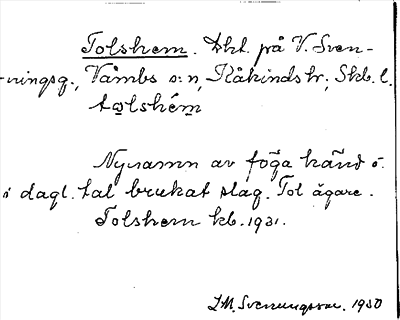 Tolshem. Dkt. på V. Sven-
ningsg., Våmbs s:n, Kåkinds hr; Skb. l.
tolshém
Nynamn av föga känd o.
i dagl. tal brukat slag. Tol ägare.
Tolshem kb. 1921.
L.M. Svenungsson. 1930